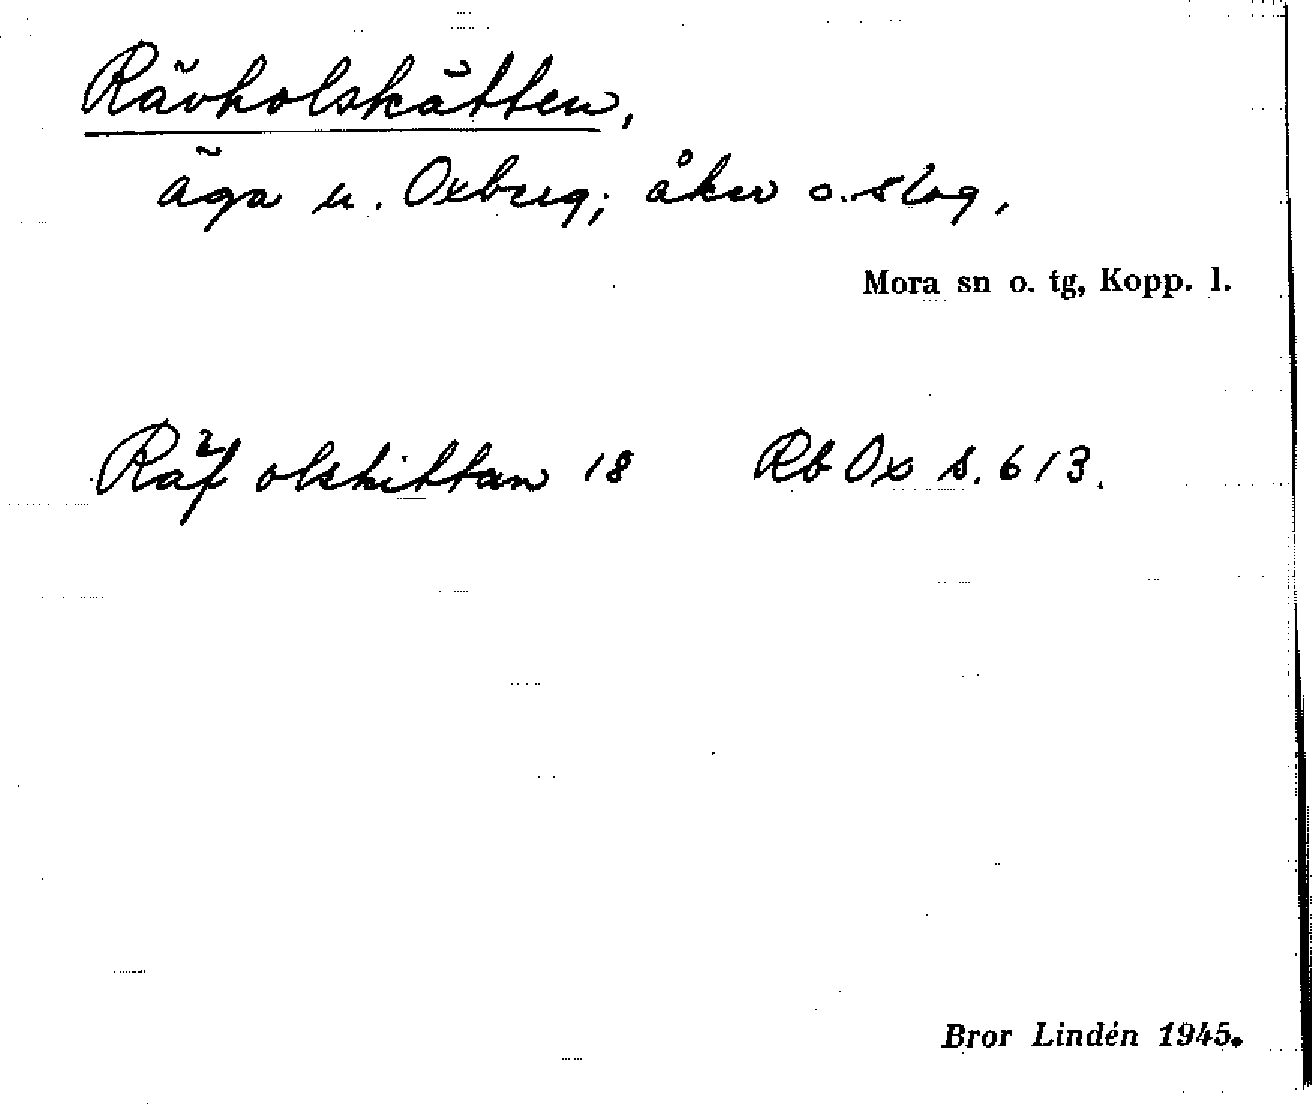 Rävholskätten,
äga u. Oxberg; åker o. slog.
Mora sn o. tg, Kopp. l.
Räf olskittan 18 Rb Ox s. 613.
Bror Lindén 1945.